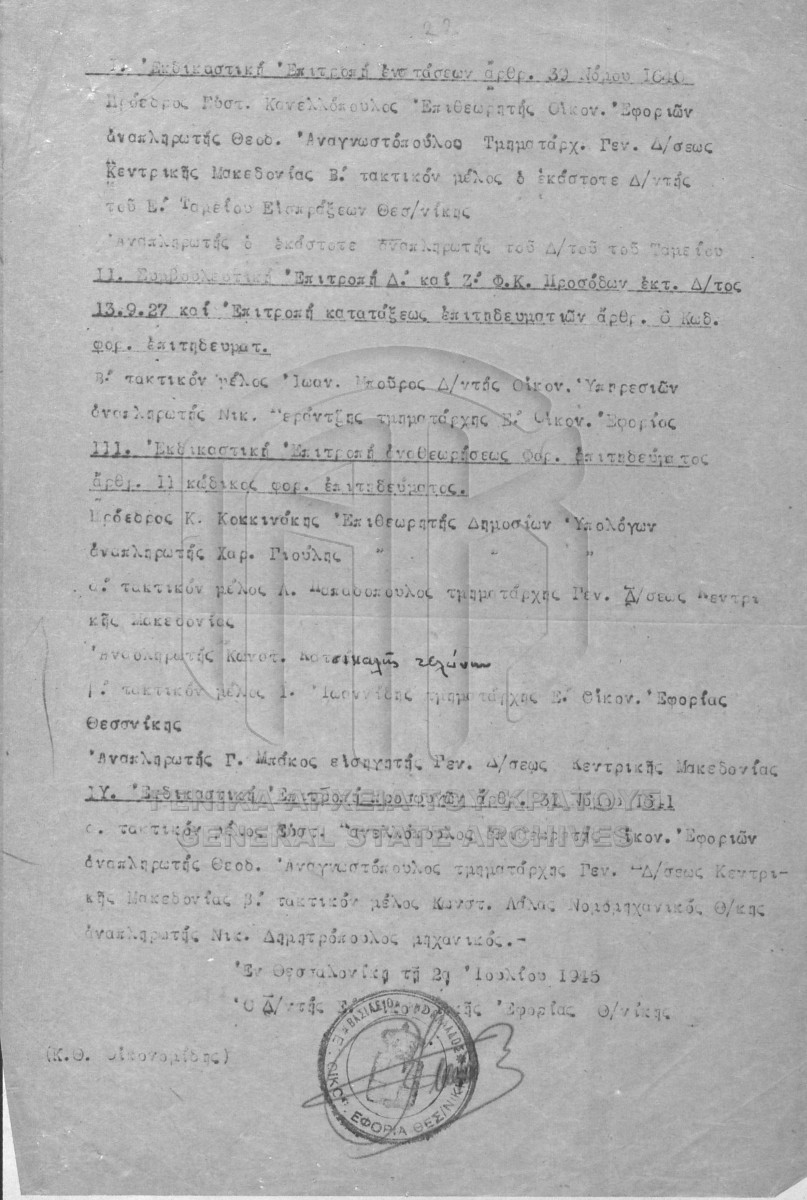 29.
1. Ἐκδικαστική Ἐπιτροπή ἐνστάσεων ἄρθρ. 39 Νόμου 1640
Πρόεδρος Εὐστ. Κανελλόπουλος Ἐπιθεωρητής Οἰκον. Ἐφοριῶν
ἀναπληρωτής Θεοδ. Ἀναγνωστόπουλος Τμηματάρχ. Γεν. Δ/σεως
Κεντρικῆς Μακεδονίας Β.' τακτικόν μέλος ὁ ἑκάστοτε Δ/ντής
τοῦ Ε.' Ταμείου Εἰσπράξεων Θεσ/νίκης
Ἀναπληρωτής ὁ ἑκάστοτε ἀναπληρωτής τοῦ Δ/τοῦ τοῦ Ταμείου
11. Συμβουλευτική Ἐπιτροπή Δ.' καί Ζ.' Φ.Κ. Προσόδων ἐκτ. Δ/τος
13.9.27 καί Ἐπιτροπή κατατάξεως ἐπιτηδευματιῶν ἄρθρ. 6 Κωδ.
φορ. ἐπιτηδευματ.
Β.' τακτικόν μέλος Ἰωαν. Μποῦρος Δ/ντής Οἰκον. Ὑπηρεσιῶν
ἀναπληρωτής Νικ. τμηματάρχης Ε.' Οἰκον. Ἐφορίας
111. Ἐκδικαστική Ἐπιτροπή ἀναθεωρήσεως φορ. ἐπιτηδεύματος
ἄρθρ. 11 κώδικος φορ. ἐπιτηδεύματος.
Πρόεδρος Κ. Κοκκινάκης Ἐπιθεωρητής Δημοσίων Ὑπολόγων
ἀναπληρωτής Χαρ. Γιούλης " " "
α.' τακτικόν μέλος Λ. Παπαδόπουλος τμηματάρχης Γεν. Δ/σεως Κεντρι
κῆς Μακεδονίας
Ἀναπληρωτής Κωνστ. Κατσικαλῆς τελώνης
β.' τακτικόν μέλος Ι. Ἰωαννίδης τμηματάρχης Ε.' Οἰκον. Ἐφορίας
Θεσσνίκης
Ἀναπληρωτής Γ. Μπάκος εἰσηγητής Γεν. Δ/σεως Κεντρικῆς Μακεδονίας
1V. Ἐκδικαστική Ἐπιτροπή προσφυγῶν ἄρθρ. 31 Νόμου 1641
ΓΕΝΙΚΑ ΑΡΧΕΙΑ ΤΟΥ ΚΡΑΤΟΥΣ
α. τακτικόν μέλος Εὐστ. Κανελλόπουλος Ἐπιθεωρητής Οἰκον. Ἐφοριῶν
GENERAL STATE ARCHIVES
ἀναπληρωτής Θεοδ. Ἀναγνωστόπουλος τμηματάρχης Γεν. Δ/σεως Κεντρι-
κῆς Μακεδονίας β.' τακτικόν μέλος Κωνστ. Λάλας Νομομηχανικός Θ/κης
ἀναπληρωτής Νικ. Δημητρόπουλος μηχανικός.-
Ἐν Θεσσαλονίκῃ τῇ 2η Ἰουλίου 1945
Ὁ Δ/ντής Ε.' Ἐφορίας Θ/νίκης
ΒΑΣΙΛΕΙΟΝ ΤΗΣ ΕΛΛΑΔΟΣ
Ε' ΟΙΚΟΝ. ΕΦΟΡΙΑ ΘΕΣ/ΝΙΚΗΣ
(Κ.Θ. Οἰκονομίδης)